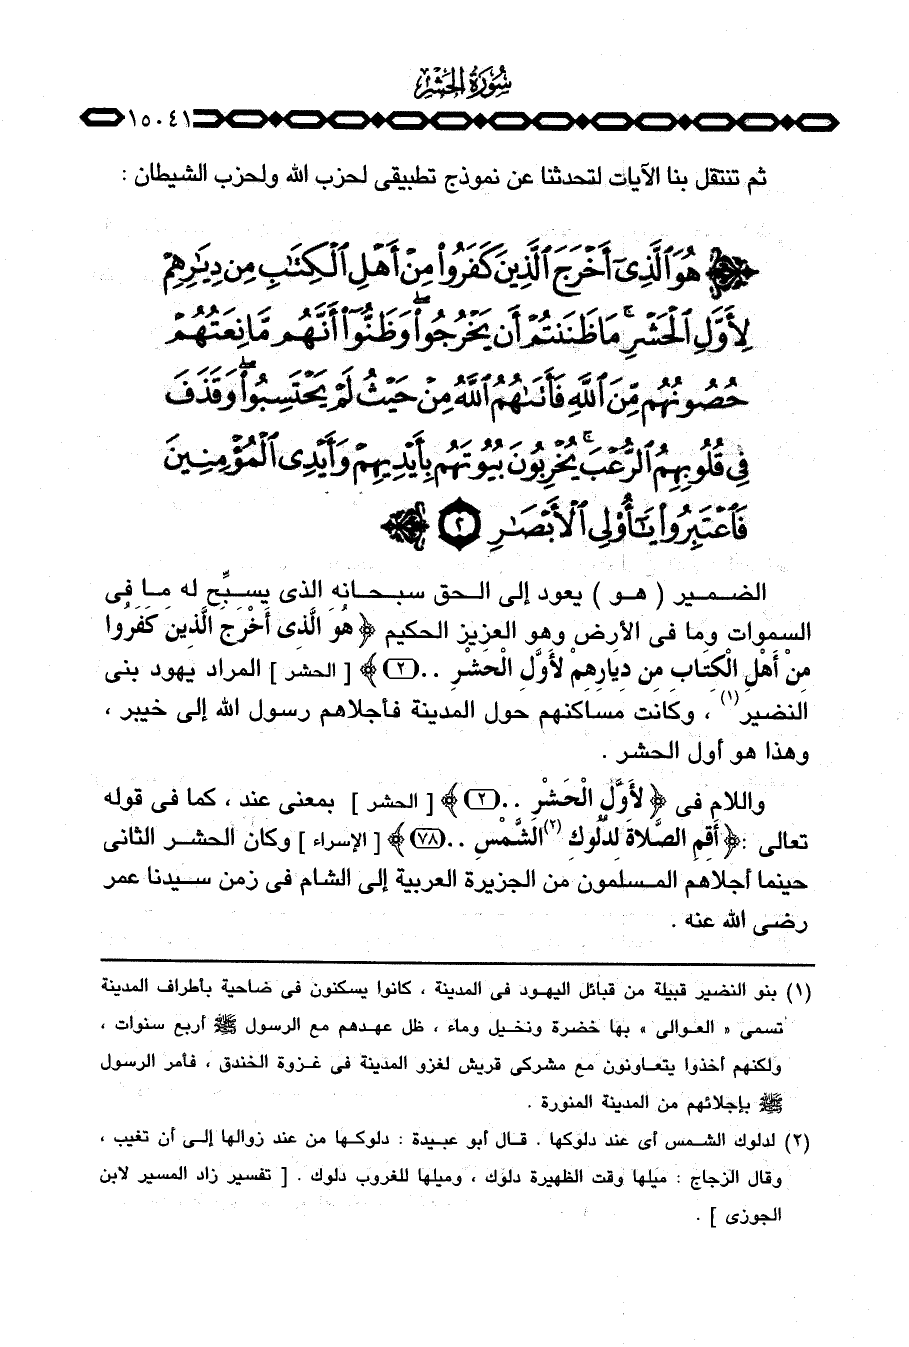 سُورَةُ الحَشْرِ
١٥٠٤١
ثم تنتقل بنا الآيات لتحدثنا عن نموذج تطبيقى لحزب الله ولحزب الشيطان :
هُوَ ٱلَّذِىٓ أَخْرَجَ ٱلَّذِينَ كَفَرُواْ مِنْ أَهْلِ ٱلْكِتَٰبِ مِن دِيَٰرِهِمْ
لِأَوَّلِ ٱلْحَشْرِۚ مَا ظَنَنتُمْ أَن يَخْرُجُواْۖ وَظَنُّوٓاْ أَنَّهُم مَّانِعَتُهُمْ
حُصُونُهُم مِّنَ ٱللَّهِ فَأَتَىٰهُمُ ٱللَّهُ مِنْ حَيْثُ لَمْ يَحْتَسِبُواْۖ وَقَذَفَ
فِى قُلُوبِهِمُ ٱلرُّعْبَۚ يُخْرِبُونَ بُيُوتَهُم بِأَيْدِيهِمْ وَأَيْدِى ٱلْمُؤْمِنِينَ
فَٱعْتَبِرُواْ يَٰٓأُوْلِى ٱلْأَبْصَٰرِ ٢
الضمير ( هو ) يعود إلى الحق سبحانه الذى يسبِّح له ما فى
السموات وما فى الأرض وهو العزيز الحكيم ﴿ هُوَ الَّذِى أَخْرَجَ الَّذِينَ كَفَرُوا
مِنْ أَهْلِ الْكِتَابِ مِن دِيَارِهِمْ لأَوَّلِ الْحَشْرِ .. (٢) ﴾ [ الحشر ] المراد يهود بنى
النضير(١) ، وكانت مساكنهم حول المدينة فأجلاهم رسول الله إلى خيبر ،
وهذا هو أول الحشر .
واللام فى ﴿ لأَوَّلِ الْحَشْرِ .. (٢) ﴾ [ الحشر ] بمعنى عند ، كما فى قوله
تعالى : ﴿ أَقِمِ الصَّلاةَ لِدُلُوكِ (٢) الشَّمْسِ .. (٧٨) ﴾ [ الإسراء ] وكان الحشر الثانى
حينما أجلاهم المسلمون من الجزيرة العربية إلى الشام فى زمن سيدنا عمر
رضى الله عنه .
(١) بنو النضير قبيلة من قبائل اليهود فى المدينة ، كانوا يسكنون فى ضاحية بأطراف المدينة
تسمى « العوالى » بها خضرة ونخيل وماء ، ظل عهدهم مع الرسول ﷺ أربع سنوات ،
ولكنهم أخذوا يتعاونون مع مشركى قريش لغزو المدينة فى غزوة الخندق ، فأمر الرسول
ﷺ بإجلائهم من المدينة المنورة .
(٢) لدلوك الشمس أى عند دلوكها . قال أبو عبيدة : دلوكها من عند زوالها إلى أن تغيب ،
وقال الزجاج : ميلها وقت الظهيرة دلوك ، وميلها للغروب دلوك . [ تفسير زاد المسير لابن
الجوزى ] .